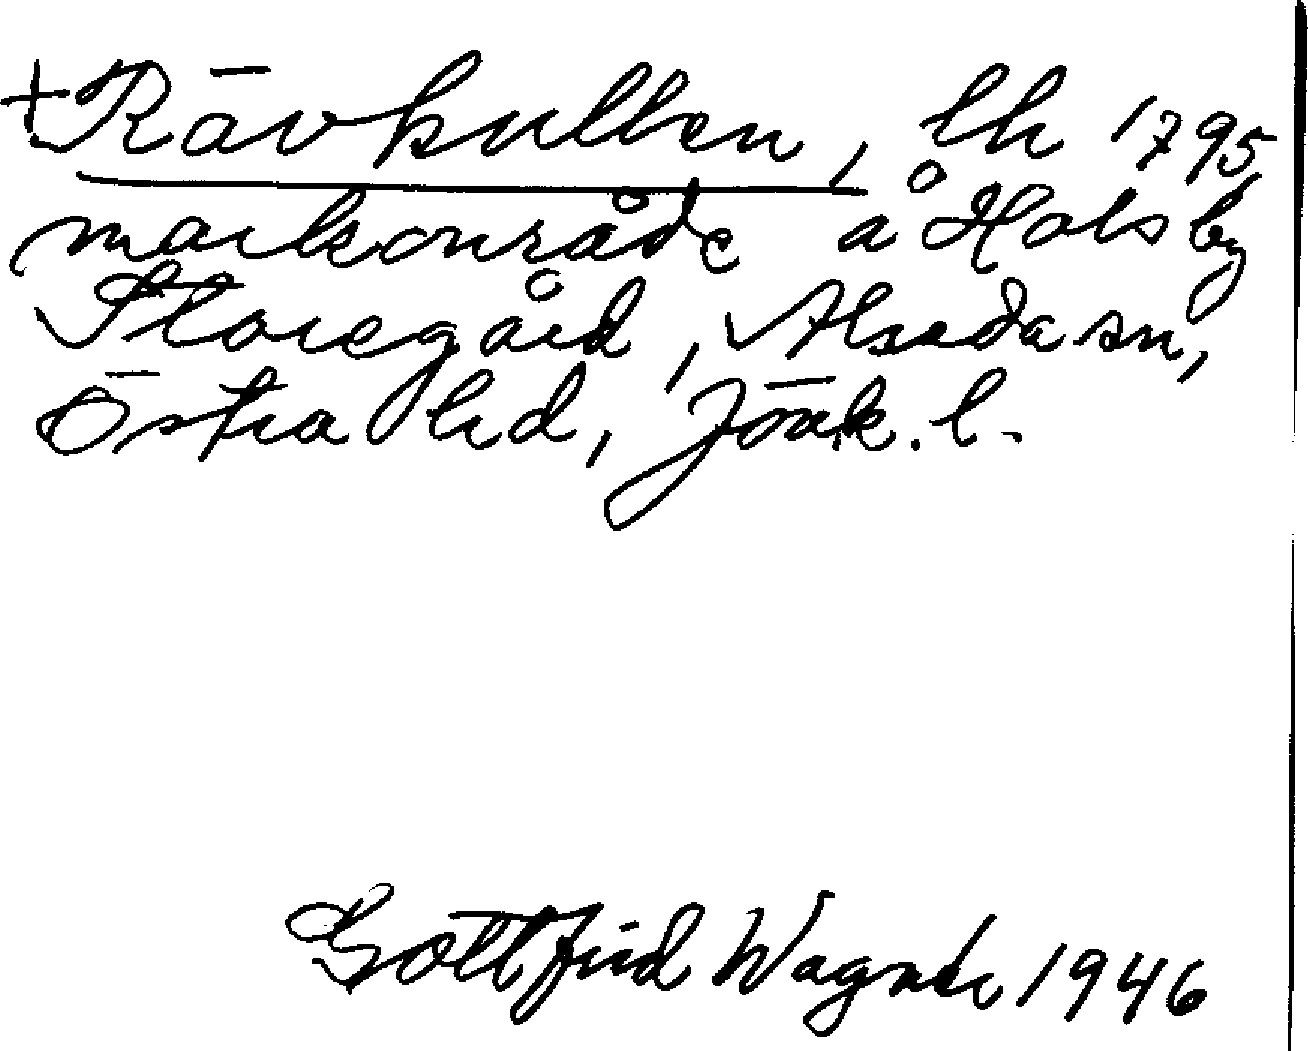 +Rävkullen, lh 1795,
markområde å Holsby
Storegård, Alseda sn,
Östra hd, Jönk. l.
Gottfrid Wagnér 1946